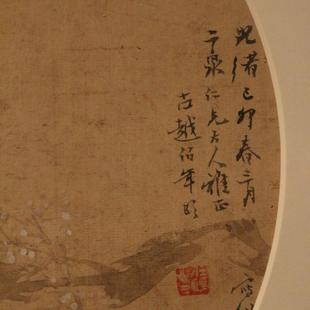 光緒己卯春三月
泉仁兄大人雅正
古越伯年